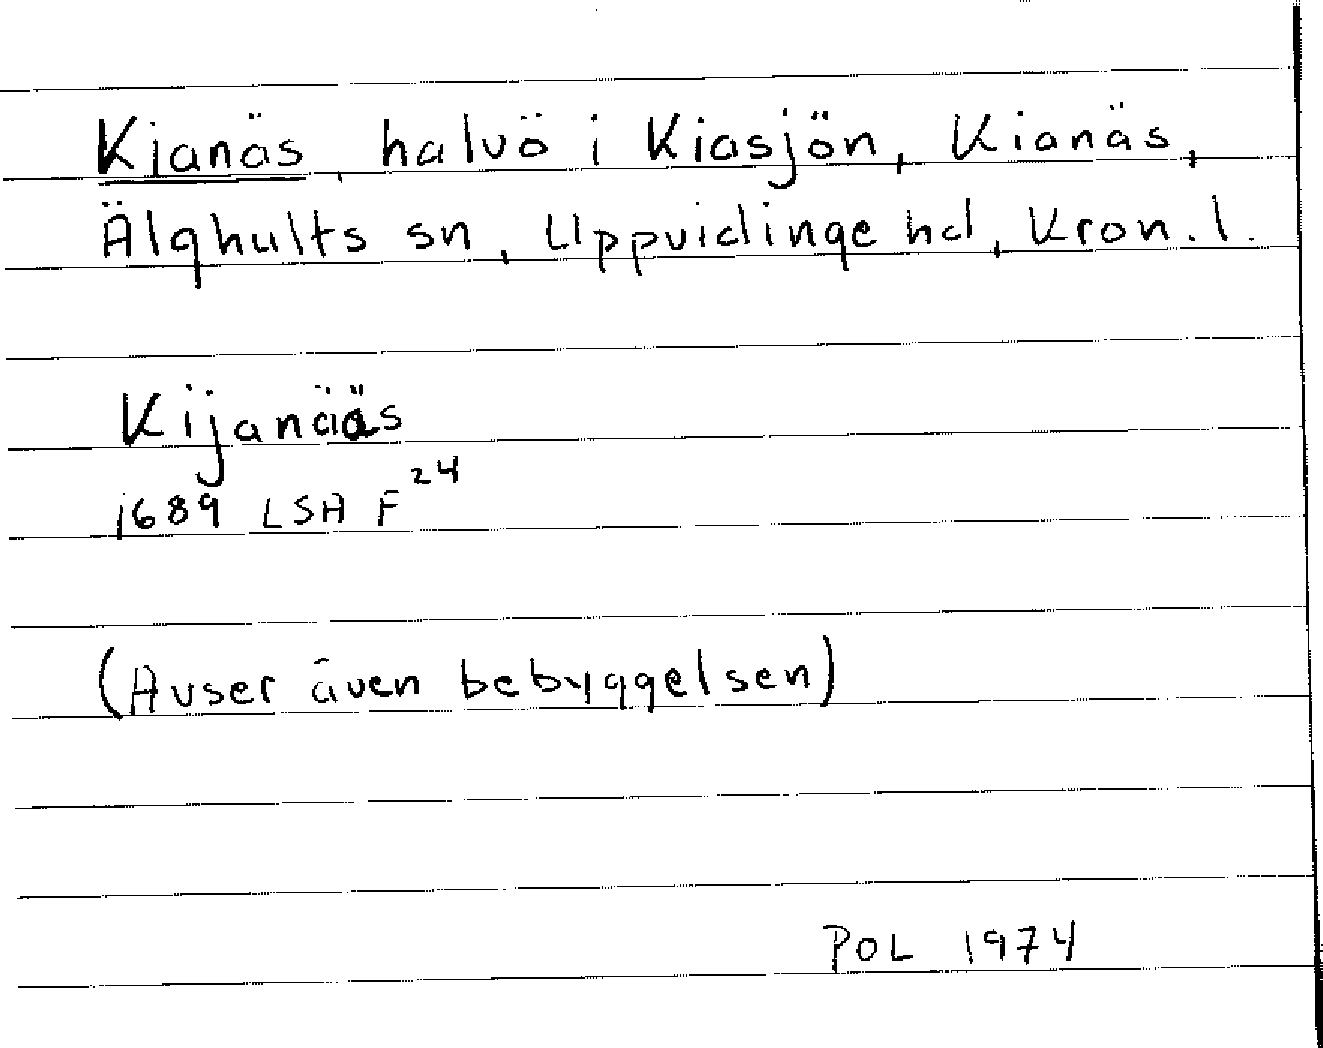 Kianäs, halvö i Kiasjön, Kianäs,
Älghults sn, Uppvidinge hd, Kron. l.
Kijanääs
1689 LSA F 24
(Avser även bebyggelsen)
POL 1974